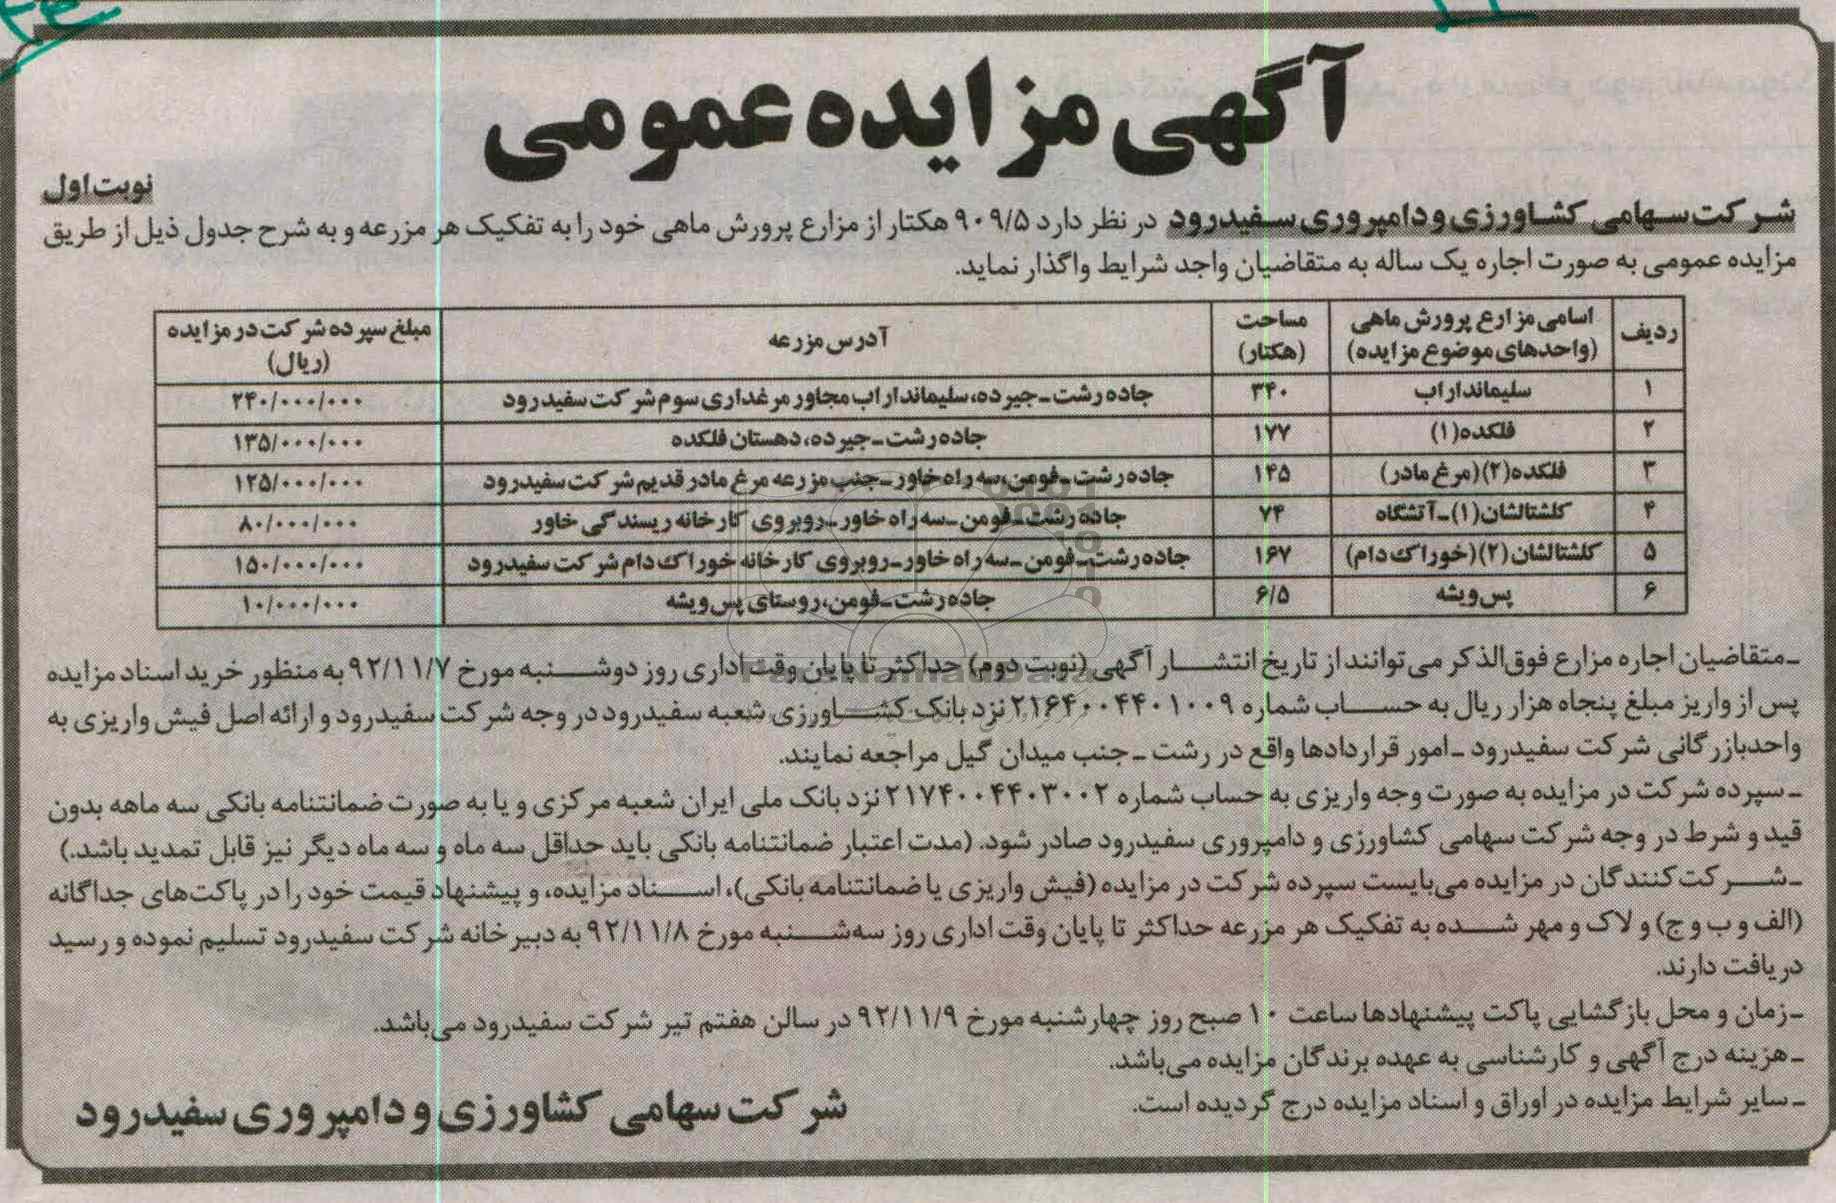 آگهی مزایده عمومی
نوبت اول
شرکت سهامی کشاورزی و دامپروری سفیدرود در نظر دارد ۹۰۹/۵ هکتار از مزارع پرورش ماهی خود را به تفکیک هر مزرعه و به شرح جدول ذیل از طریق
مزایده عمومی به صورت اجاره یک ساله به متقاضیان واجد شرایط واگذار نماید.
ردیف | اسامی مزارع پرورش ماهی (واحدهای موضوع مزایده) | مساحت (هکتار) | آدرس مزرعه | مبلغ سپرده شرکت در مزایده (ریال)
۱ | سلیمانداراب | ۳۴۰ | جاده رشت ـ جیرده، سلیمانداراب مجاور مرغداری سوم شرکت سفیدرود | ۲۴۰/۰۰۰/۰۰۰
۲ | فلکده (۱) | ۱۷۷ | جاده رشت ـ جیرده، دهستان فلکده | ۱۳۵/۰۰۰/۰۰۰
۳ | فلکده (۲) (مرغ مادر) | ۱۴۵ | جاده رشت ـ فومن، سه راه خاور ـ جنب مزرعه مرغ مادر قدیم شرکت سفیدرود | ۱۲۵/۰۰۰/۰۰۰
۴ | کلشتالشان (۱) ـ آتشگاه | ۷۴ | جاده رشت ـ فومن ـ سه راه خاور ـ روبروی کارخانه ریسندگی خاور | ۸۰/۰۰۰/۰۰۰
۵ | کلشتالشان (۲) (خوراک دام) | ۱۶۷ | جاده رشت ـ فومن ـ سه راه خاور ـ روبروی کارخانه خوراک دام شرکت سفیدرود | ۱۵۰/۰۰۰/۰۰۰
۶ | پس ویشه | ۶/۵ | جاده رشت ـ فومن، روستای پس ویشه | ۱۰/۰۰۰/۰۰۰
ـ متقاضیان اجاره مزارع فوق‌الذکر می‌توانند از تاریخ انتشار آگهی (نوبت دوم) حداکثر تا پایان وقت اداری روز دوشنبه مورخ ۹۲/۱۱/۷ به منظور خرید اسناد مزایده
پس از واریز مبلغ پنجاه هزار ریال به حساب شماره ۲۱۶۴۰۰۴۴۰۱۰۰۹ نزد بانک کشاورزی شعبه سفیدرود در وجه شرکت سفیدرود و ارائه اصل فیش واریزی به
واحد بازرگانی شرکت سفیدرود ـ امور قراردادها واقع در رشت ـ جنب میدان گیل مراجعه نمایند.
ـ سپرده شرکت در مزایده به صورت وجه واریزی به حساب شماره ۲۱۷۴۰۰۴۴۰۳۰۰۲ نزد بانک ملی ایران شعبه مرکزی و یا به صورت ضمانتنامه بانکی سه ماهه بدون
قید و شرط در وجه شرکت سهامی کشاورزی و دامپروری سفیدرود صادر شود. (مدت اعتبار ضمانتنامه بانکی باید حداقل سه ماه و سه ماه دیگر نیز قابل تمدید باشد.)
ـ شرکت کنندگان در مزایده می‌بایست سپرده شرکت در مزایده (فیش واریزی یا ضمانتنامه بانکی)، اسناد مزایده، و پیشنهاد قیمت خود را در پاکت‌های جداگانه
(الف و ب و ج) و لاک و مهر شده به تفکیک هر مزرعه حداکثر تا پایان وقت اداری روز سه‌شنبه مورخ ۹۲/۱۱/۸ به دبیرخانه شرکت سفیدرود تسلیم نموده و رسید
دریافت دارند.
ـ زمان و محل بازگشایی پاکت پیشنهادها ساعت ۱۰ صبح روز چهارشنبه مورخ ۹۲/۱۱/۹ در سالن هفتم تیر شرکت سفیدرود می‌باشد.
ـ هزینه درج آگهی و کارشناسی به عهده برندگان مزایده می‌باشد.
ـ سایر شرایط مزایده در اوراق و اسناد مزایده درج گردیده است.
شرکت سهامی کشاورزی و دامپروری سفیدرود